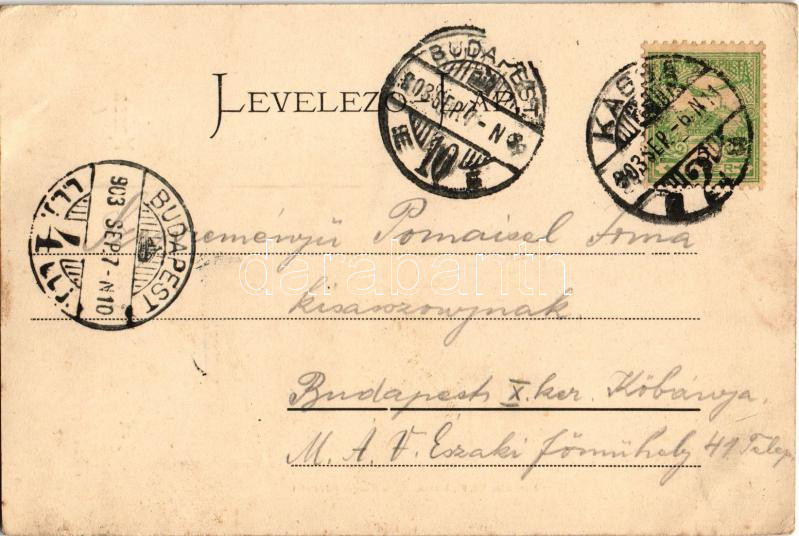 LEVELEZŐ-LAP.
BUDAPEST
903 SEP. 7 - N
10
KASSA
903 SEP. - 6. N
BUDAPEST
903 SEP. 7 - N 10
4
Pomaisel Irma
kisasszonynak
darabanth
Budapest X. ker. Kőbánya.
M. Á. V. Északi főműhely 41 Telep